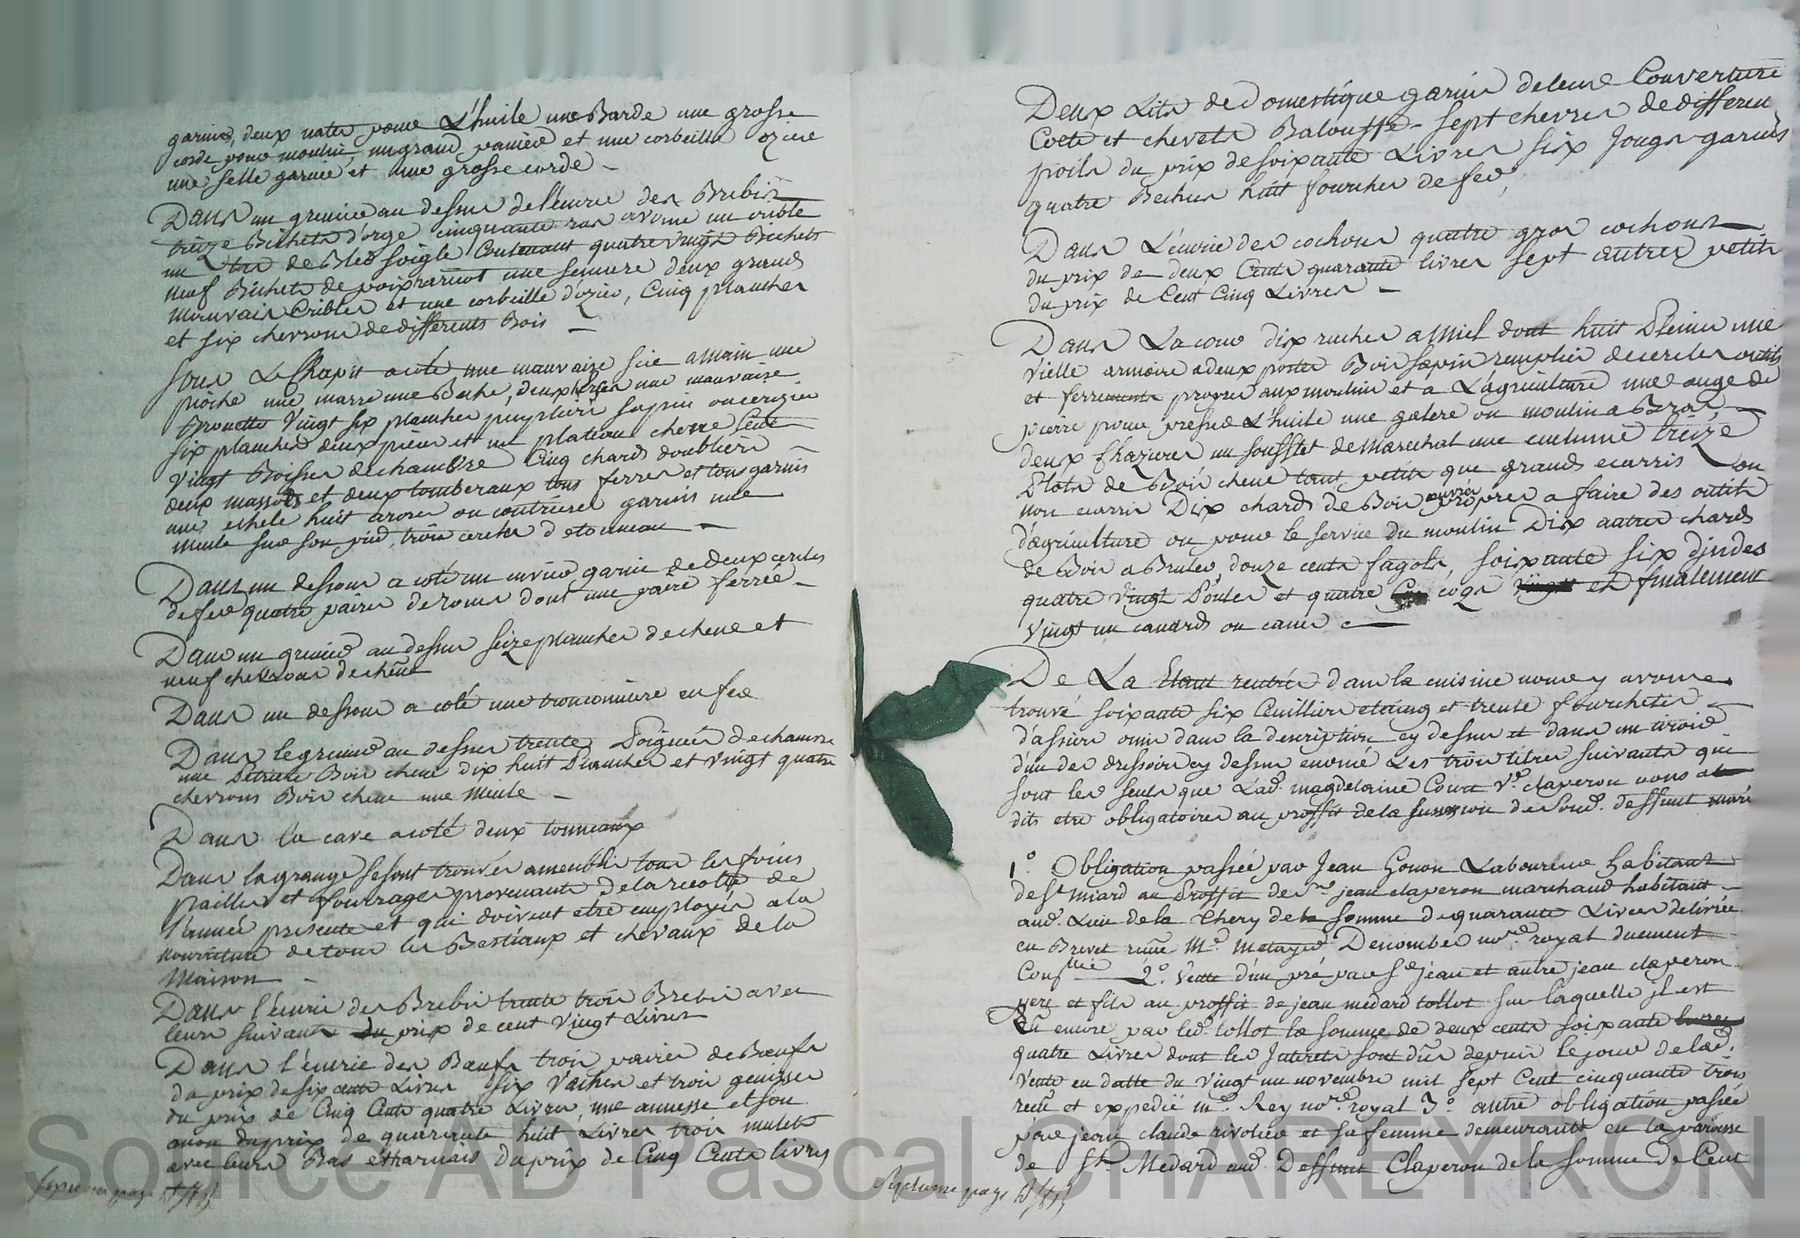 garnie, deux nates pour L'huile une Barde une grosse
corde pour moulin, un grand paniere et une corbeille ozier
une selle garnie et une grosse corde -
Dans un grenier au dessus de l'ecurie des Brebis
treize Bichets d'orge cinquante ras avoine un crible
un tas de Bled soigle Contenant quatre vingts Bichets
neuf Bichets de poix haricot une semure deux grands
mauvais Cribles et une corbeille d'ozier, Cinq planches
et six chevrons de differents Bois -
Sous Le Chapit a coté une mauvaize scie a main une
pioche une marre une Beche, deux une mauvaise
Brouette Vingt six planches pupliers sapin ou cerizier
six planches deux pieces et un plateau chene Cent
vingt Boisses de chambre Cinq chards doubliers
deux massots et deux tomberaux tous ferres et tous garnis
une echele huit arores ou coutrieres garnis une
Meule sur son pied, trois cercles d'etourneau -
Dans un dessous a coté un cuvier garni de Deux cercles
de fer quatre paires de roues dont une paire ferrée -
Dans un grenier au dessus seize planches de chene et
neuf chevrons de chêne
Dans un dessous a coté une tronconniere en fer
Dans le grenier au dessus trente Poignées de chanvre
une Bois chene dix huit Planches et vingt quatre
chevrons Bois chene une Meule -
Dans la cave a coté deux tonneaux
Dans la grange se sont trouvés ameublis tous les foins
pailles et fourrages provenants de la recolte de
l'année presente et qui doivent etre employés a la
nourriture de tous les Bestiaux et chevaux de la
Maison -
Dans l'écurie des Brebis trente trois Brebis avec
leurs suivants du prix de cent vingt Livres
Dans l'écurie des Bœufs trois paires de Bœufs
du prix de six cents Livres six Vaches et trois genisses
du prix de Cinq Cents quatre Livres, une annesse et son
anon du prix de quarante huit Livres trois mulets
avec leurs Bas et harnais du prix de Cinq Cents livres
Sixieme page
Deux Lits de Domestique garnis de leur Couverture
Coete et chevets Balouffe - sept chevres de differens
poils du prix de soixante Livres six Jougs garnis
quatre Beches huit fourches de fer,
Dans L'écurie des cochons quatre gros cochons
du prix de deux Cents quarante livres sept autres petits
du prix de Cent Cinq Livres -
Dans La cour dix ruches a Miel dont huit Pleines une
vielle armoire a deux portes Bois sapin remplie de cercles outils
et ferrements propres aux moulin et a L'agriculture une auge de
pierre pour presse L'huile une galere ou moulin a Bras
deux Chazieres un soufflet de Marechal une enclume treize
Plots de Bois chene tant petits que grands ecarris ou
non ecarris Dix chards de Bois ouvrés propres a faire des outils
d'agriculture ou pour le service du moulin Dix autres chards
de Bois a Bruler, douze cents fagots, soixante six dindes
quatre vingt Poules et quatre coqs et finalement
vingt un canards ou canes -
De La Etant rentrés dans la cuisine nous y avons
trouvé soixante six Cuilliers etaing et trente fourchetes
d'assier omis dans la description cy dessus et dans un tiroir
d'un des dressoirs cy dessus enoncé Les trois titres suivants qui
sont les seuls que Lad. magdelaine Court Ve. claperon nous a
dits etre obligatoires au proffit de la succession de sond. deffunt mari
1o. Obligation passée par Jean Gonon Laboureur habitant
de St miard au Proffit de Sr. jean claperon marchand habitant
aud. Lieu de la Thery de la somme de quarante Livres delivrée
en Brevet reçue Me. Metayer Denombes nore. royal duement
Conllée 2o. Vente d'un pré par Sr jean et autre jean claperon
pere et fils au proffit de jean medard tollot sur laquelle il est
dû encore par led. tollot la somme de deux cents soixante
quatre Livres dont les Interets sont dus depuis le jour de lad.
vente en datte du vingt un novembre mil sept Cent cinquante trois
reçue et expediée me. Rey nore. royal 3o. autre obligation passée
par jean claude rivolier et sa femme demeurants en la paroisse
de St Medard aud. Deffunt Claperon de la somme de Cent
Septieme page
Source AD Pascal CHAREYRON